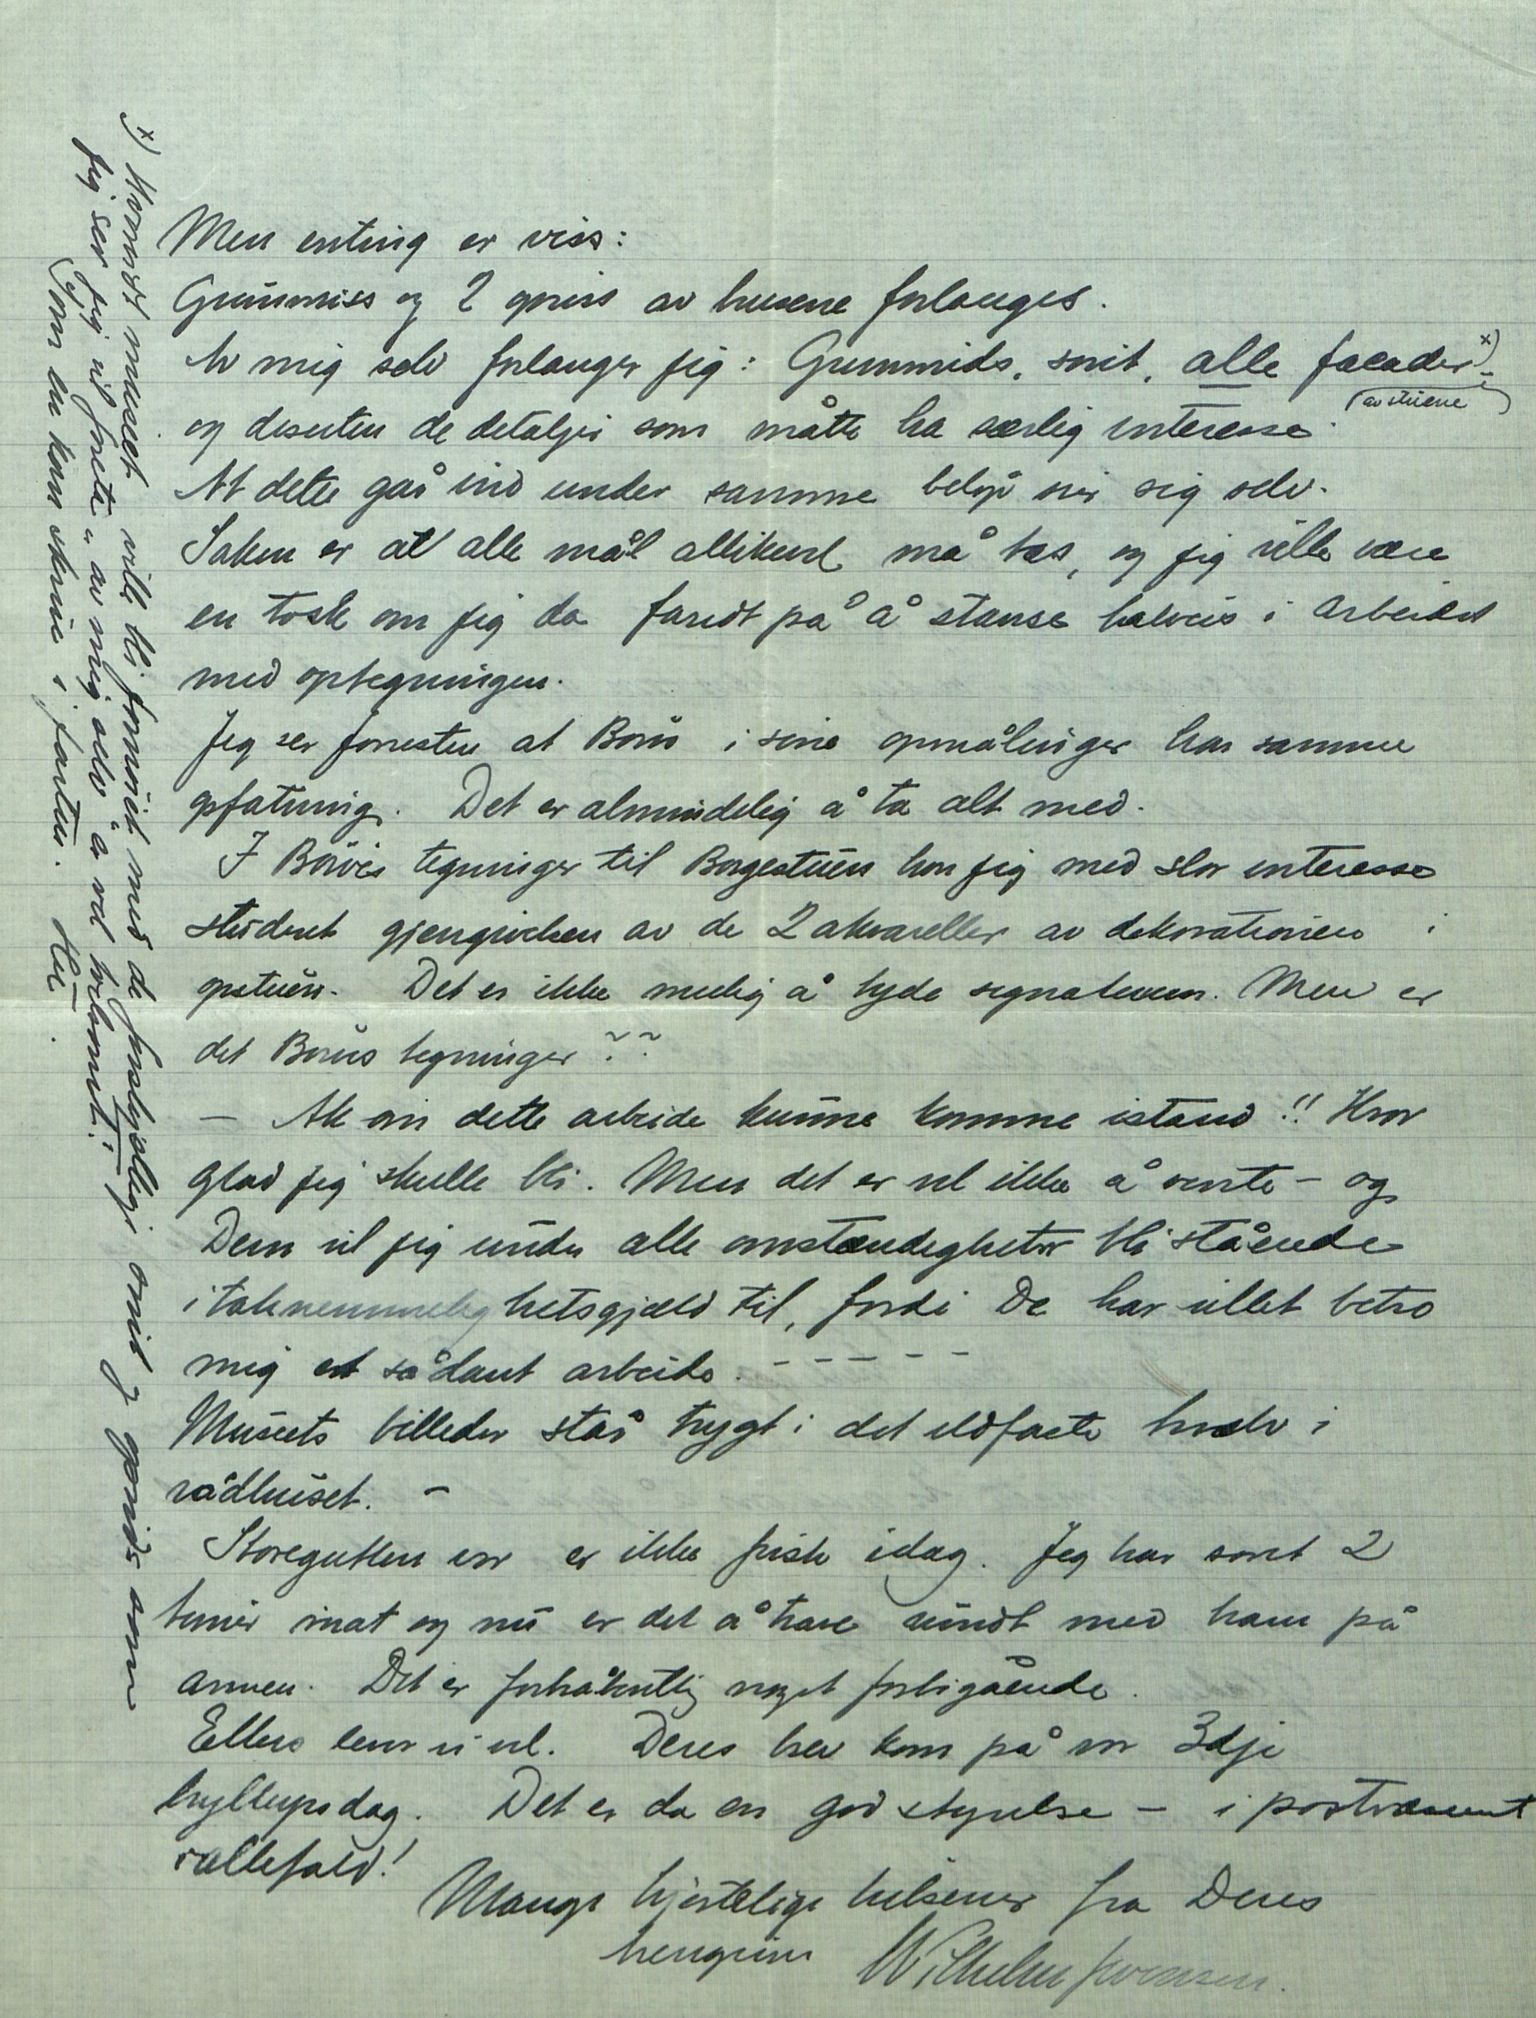 Men enting er viss:
Grunnriss og 2 opriss av husene forlanges.
Av mig selv forlanger jeg: Grunnrids, snit, alle facader x)
(av stuene)
og desuten de detaljer som måtte ha særlig interesse.
At dette går ind under samme beløp sier sig selv.
Saken er at alle mål allikevel må tas, og jeg ville være
en tosk om jeg da fandt på å stanse halveis i arbeidet
med optegningen.
Jeg ser forresten at Børve i sine opmålinger har samme
opfatning. Det er almindelig å ta alt med.
I Børves tegninger til Borgestuen har jeg med stor interesse
studeret gjengivelsen av de 2 akvareller av dekorationen i
opstuen. Det er ikke mulig å tyde signaturen. Men er
det Børves tegninger ??
— Ak om dette arbeide kunne komme istand!! Hvor
glad jeg skulle bli. Men det er vel ikke å vente – og
Dem vil jeg under alle omstændigheter bli stående
i taknemmelighetsgjæld til, fordi De har villet betro
mig et sådant arbeide. – – – – –
Museets billeder står trygt i det ildfaste hvælv i
rådhuset. –
Storegutten vor er ikke frisk idag. Jeg har sovet 2
timer inat og nu er det å trave rundt med ham på
armen. Det er forhåbentlig noget forbigående.
Ellers lever vi vel. Deres brev kom på vor 3dje
bryllupsdag. Det er da en god styrelse – i postvæsenet
iallefald!
Mange hjertelige hilsener fra Deres
hengivne Wilhelm Swensen.
x) Hvorvidt museet vilde bli fornøiet med de forskjellige snit og oprids som
jeg ser jeg vil forete" av mig selv å vel bekomt!"
(om en kan skrive i farten. Hu.